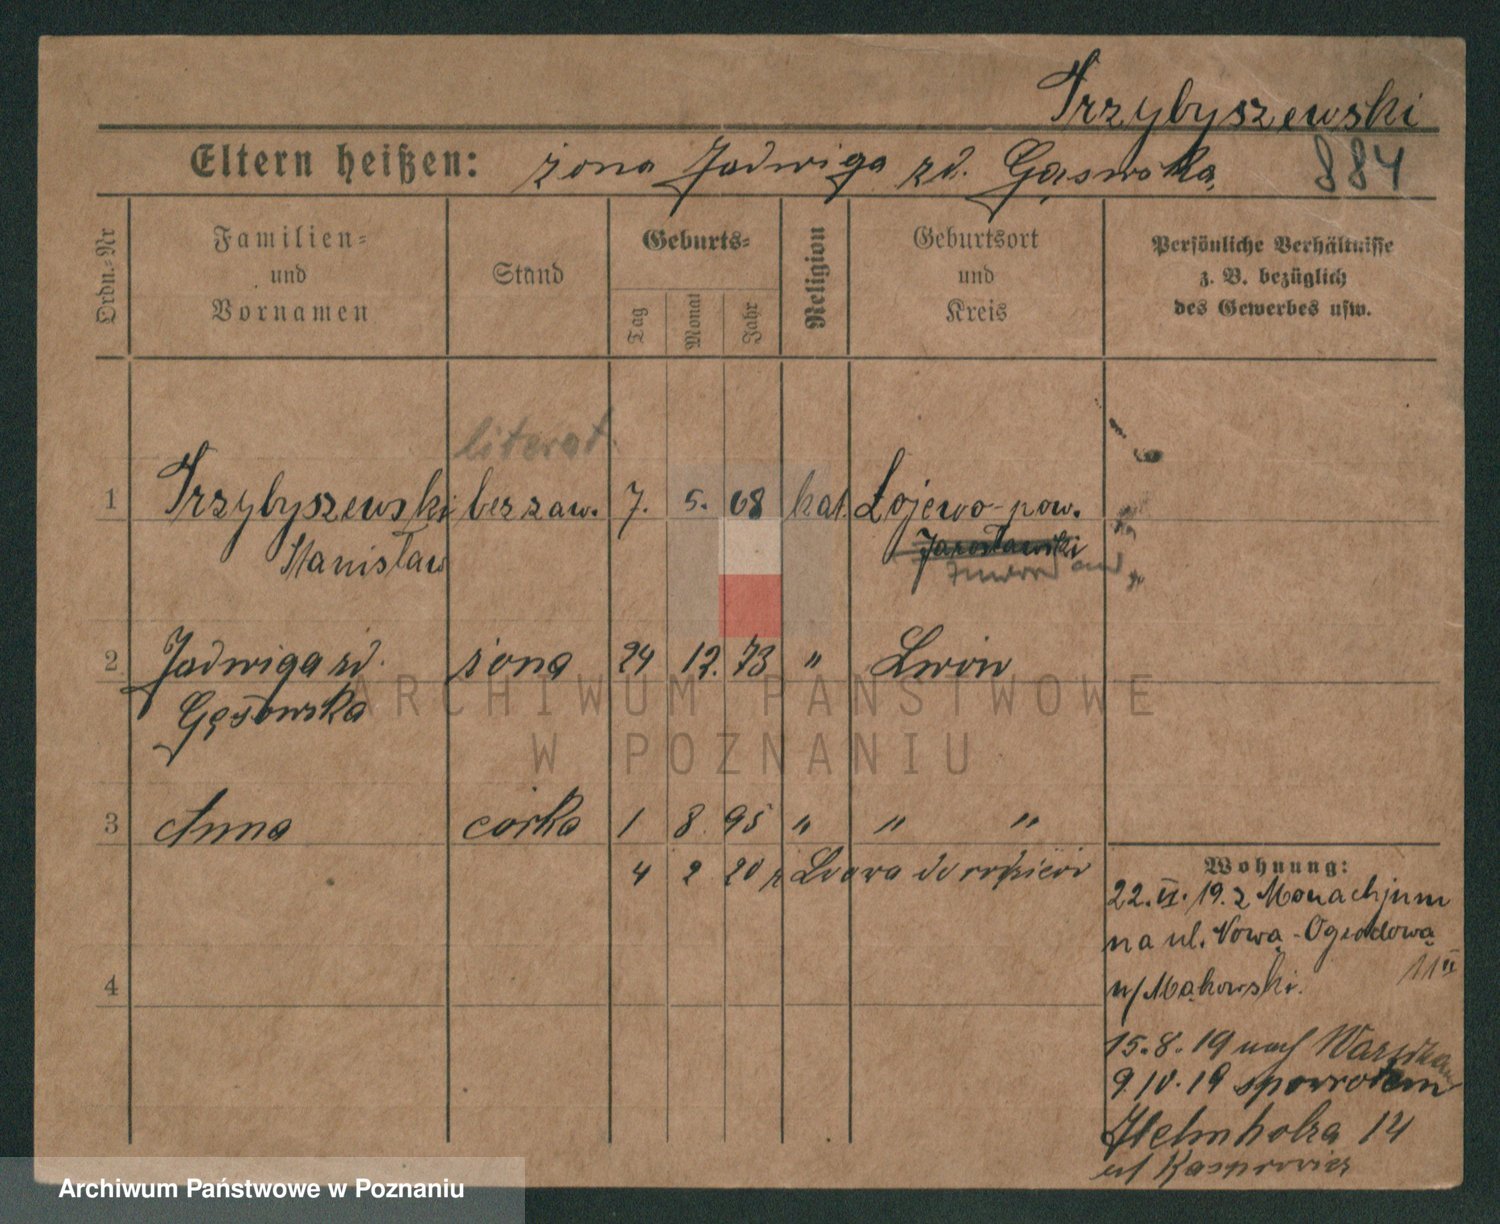 Przybyszewski
Eltern heißen: żona Jadwiga zd. Gąsowska
884
Ordn.-Nr
Familien- und Vornamen
Stand
Geburts-
Tag
Monat
Jahr
Religion
Geburtsort und Kreis
Persönliche Verhältnisse
z. B. bezüglich
des Gewerbes usw.
literat.
1 Przybyszewski bez zaw. 7. 5. 68 kat. Łojewo - pow.
Stanisław Jarosławski
2 Jadwiga zd. żona 24 12. 73 " Lwów
Gąsowska
3 Anna córka 1 8 95 " " "
4 2 20 z Lwowa do rodziców
4
Wohnung:
22. II. 19. z Monachjum
na ul. Nowa - Ogrodowa
11 II
u/ Mąkowski.
15. 8. 19 nach Warschau
9. IV. 19 spowrotem
Helmholza 14
u/ Kasprowicz
ARCHIWUM PAŃSTWOWE
W POZNANIU
Archiwum Państwowe w Poznaniu